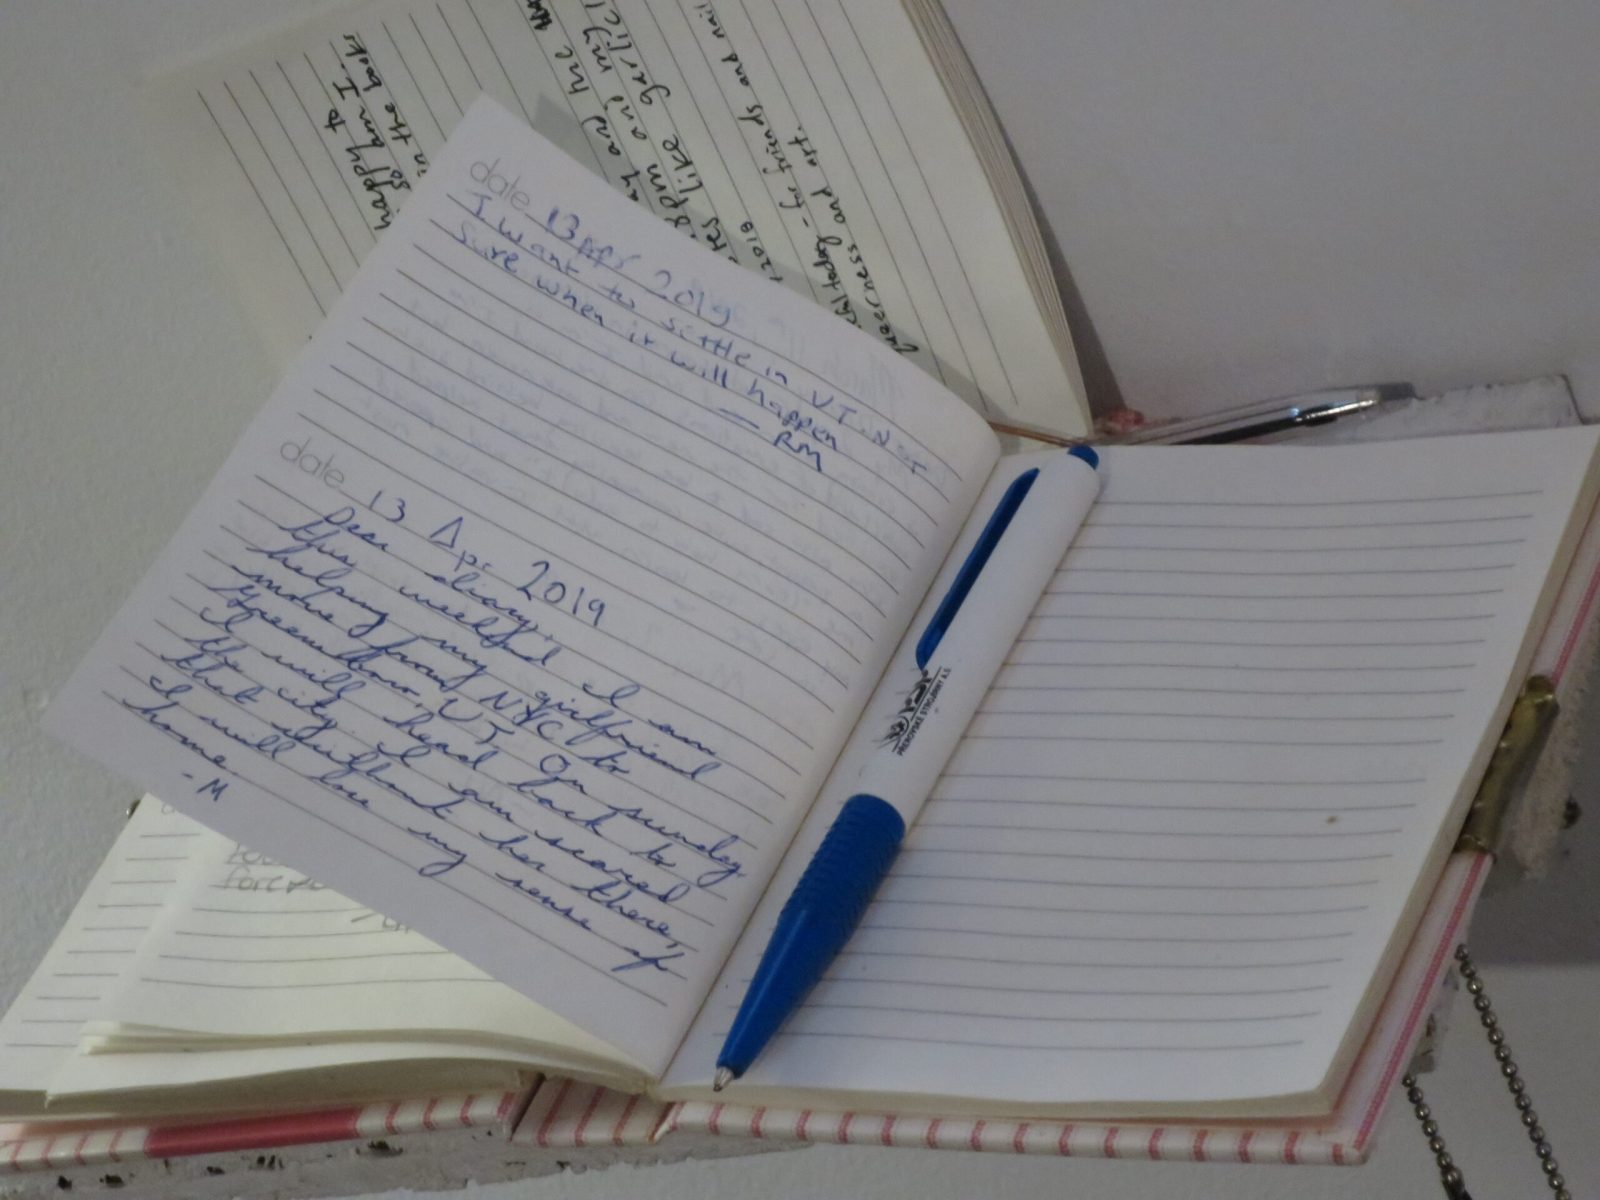 date 13 Apr 2019
I want to settle in VT. Not
sure when it will happen
— RM
date 13 Apr 2019
Dear diary,
this weekend I am
helping my girlfriend
move from NYC to
Greensboro, VT. On sunday,
I will head back to
the city. I am scared
that without her there,
I will lose my sense of
home
- M
happy to
so am I.
in the books
ay and he
8pm and my
like garlic
2019
today - for friends and nail
queerness and art.
PŘEROVSKÉ STROJÍRNY A.S.